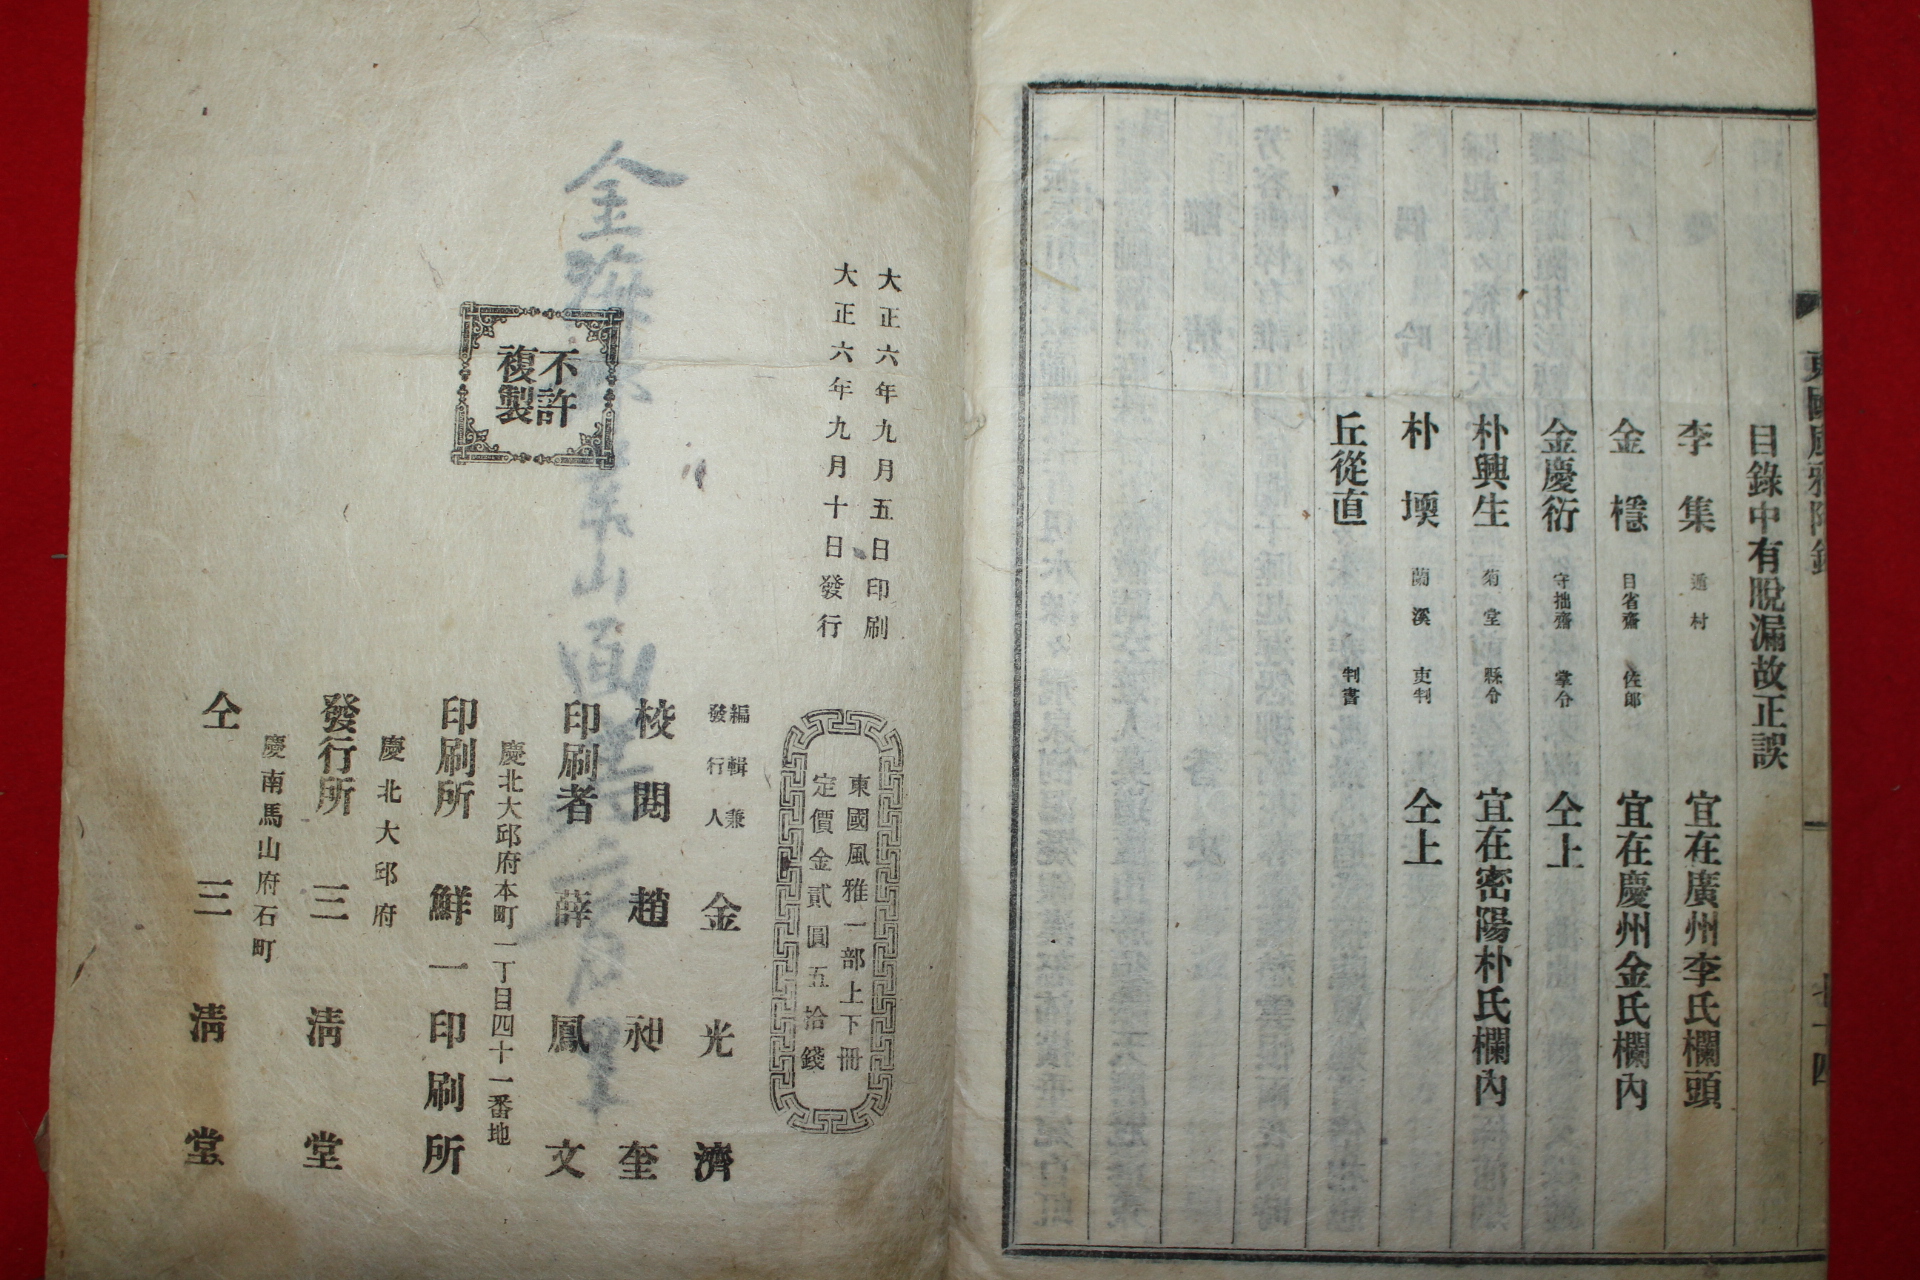 東國風雅附錄
七十四
目錄中有脫漏故正誤
李集 遁村 宜在廣州李氏欄頭
金穩 日省齋 佐郎 宜在慶州金氏欄內
金慶衍 守拙齋 掌令 仝上
朴興生 菊堂 縣令 宜在密陽朴氏欄內
朴堧 蘭溪 吏判 仝上
丘從直 判書
大正六年九月五日印刷
大正六年九月十日發行
東國風雅一部上下冊
定價金貳圓五拾錢
不許
複製
編輯兼
發行人 金光濟
校閱 趙昶奎
印刷者 薛鳳文
慶北大邱府本町一丁目四十一番地
印刷所 鮮一印刷所
慶北大邱府
發行所 三淸堂
慶南馬山府石町
仝 三淸堂
金海
山面